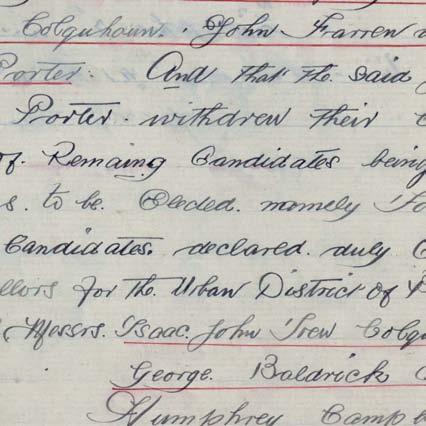 Colquhoun. John Farren
Porter. And that the said
Porter. withdrew their
of. Remaing Candidates being
s. to be. Elected. namely
Candidates. declared. duly
llors for the. Urban District of
Messrs. Isaac. John Trew Colqu
George. Baldrick
Humphrey Campb